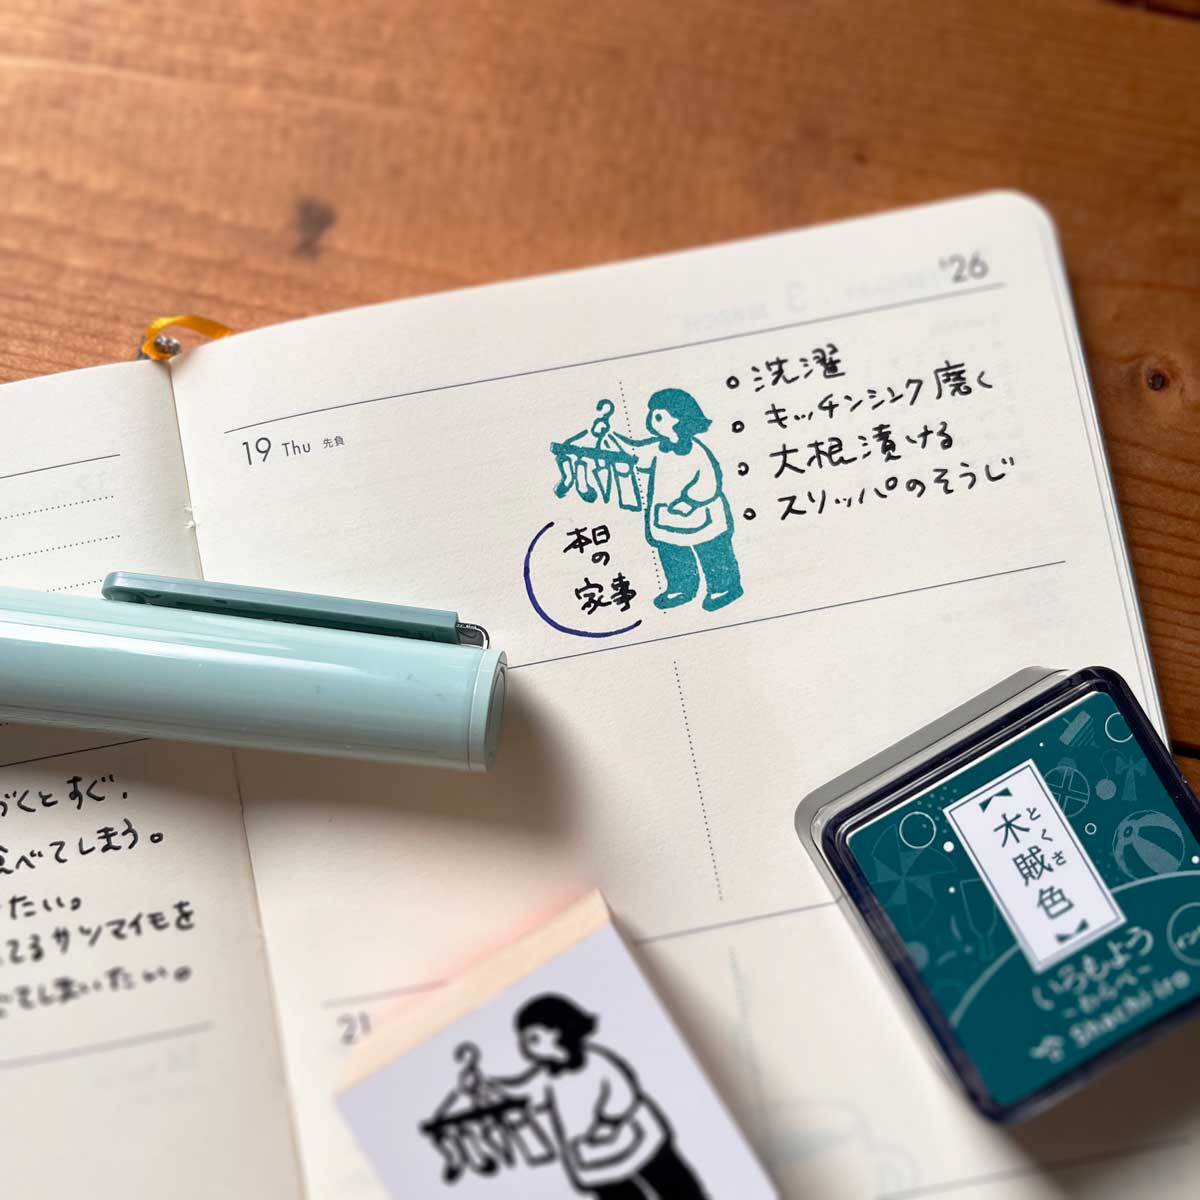 '26
19 Thu 先負
洗濯
キッチンシンク磨く
大根漬ける
スリッパのそうじ
本日
の
家事
づくとすぐ、
食べてしまう。
たい。
てるサンマイモを
てしまいたい。
21
【木賊色】
とくさ
いろもよう
~わらべ~
Shachi-iro